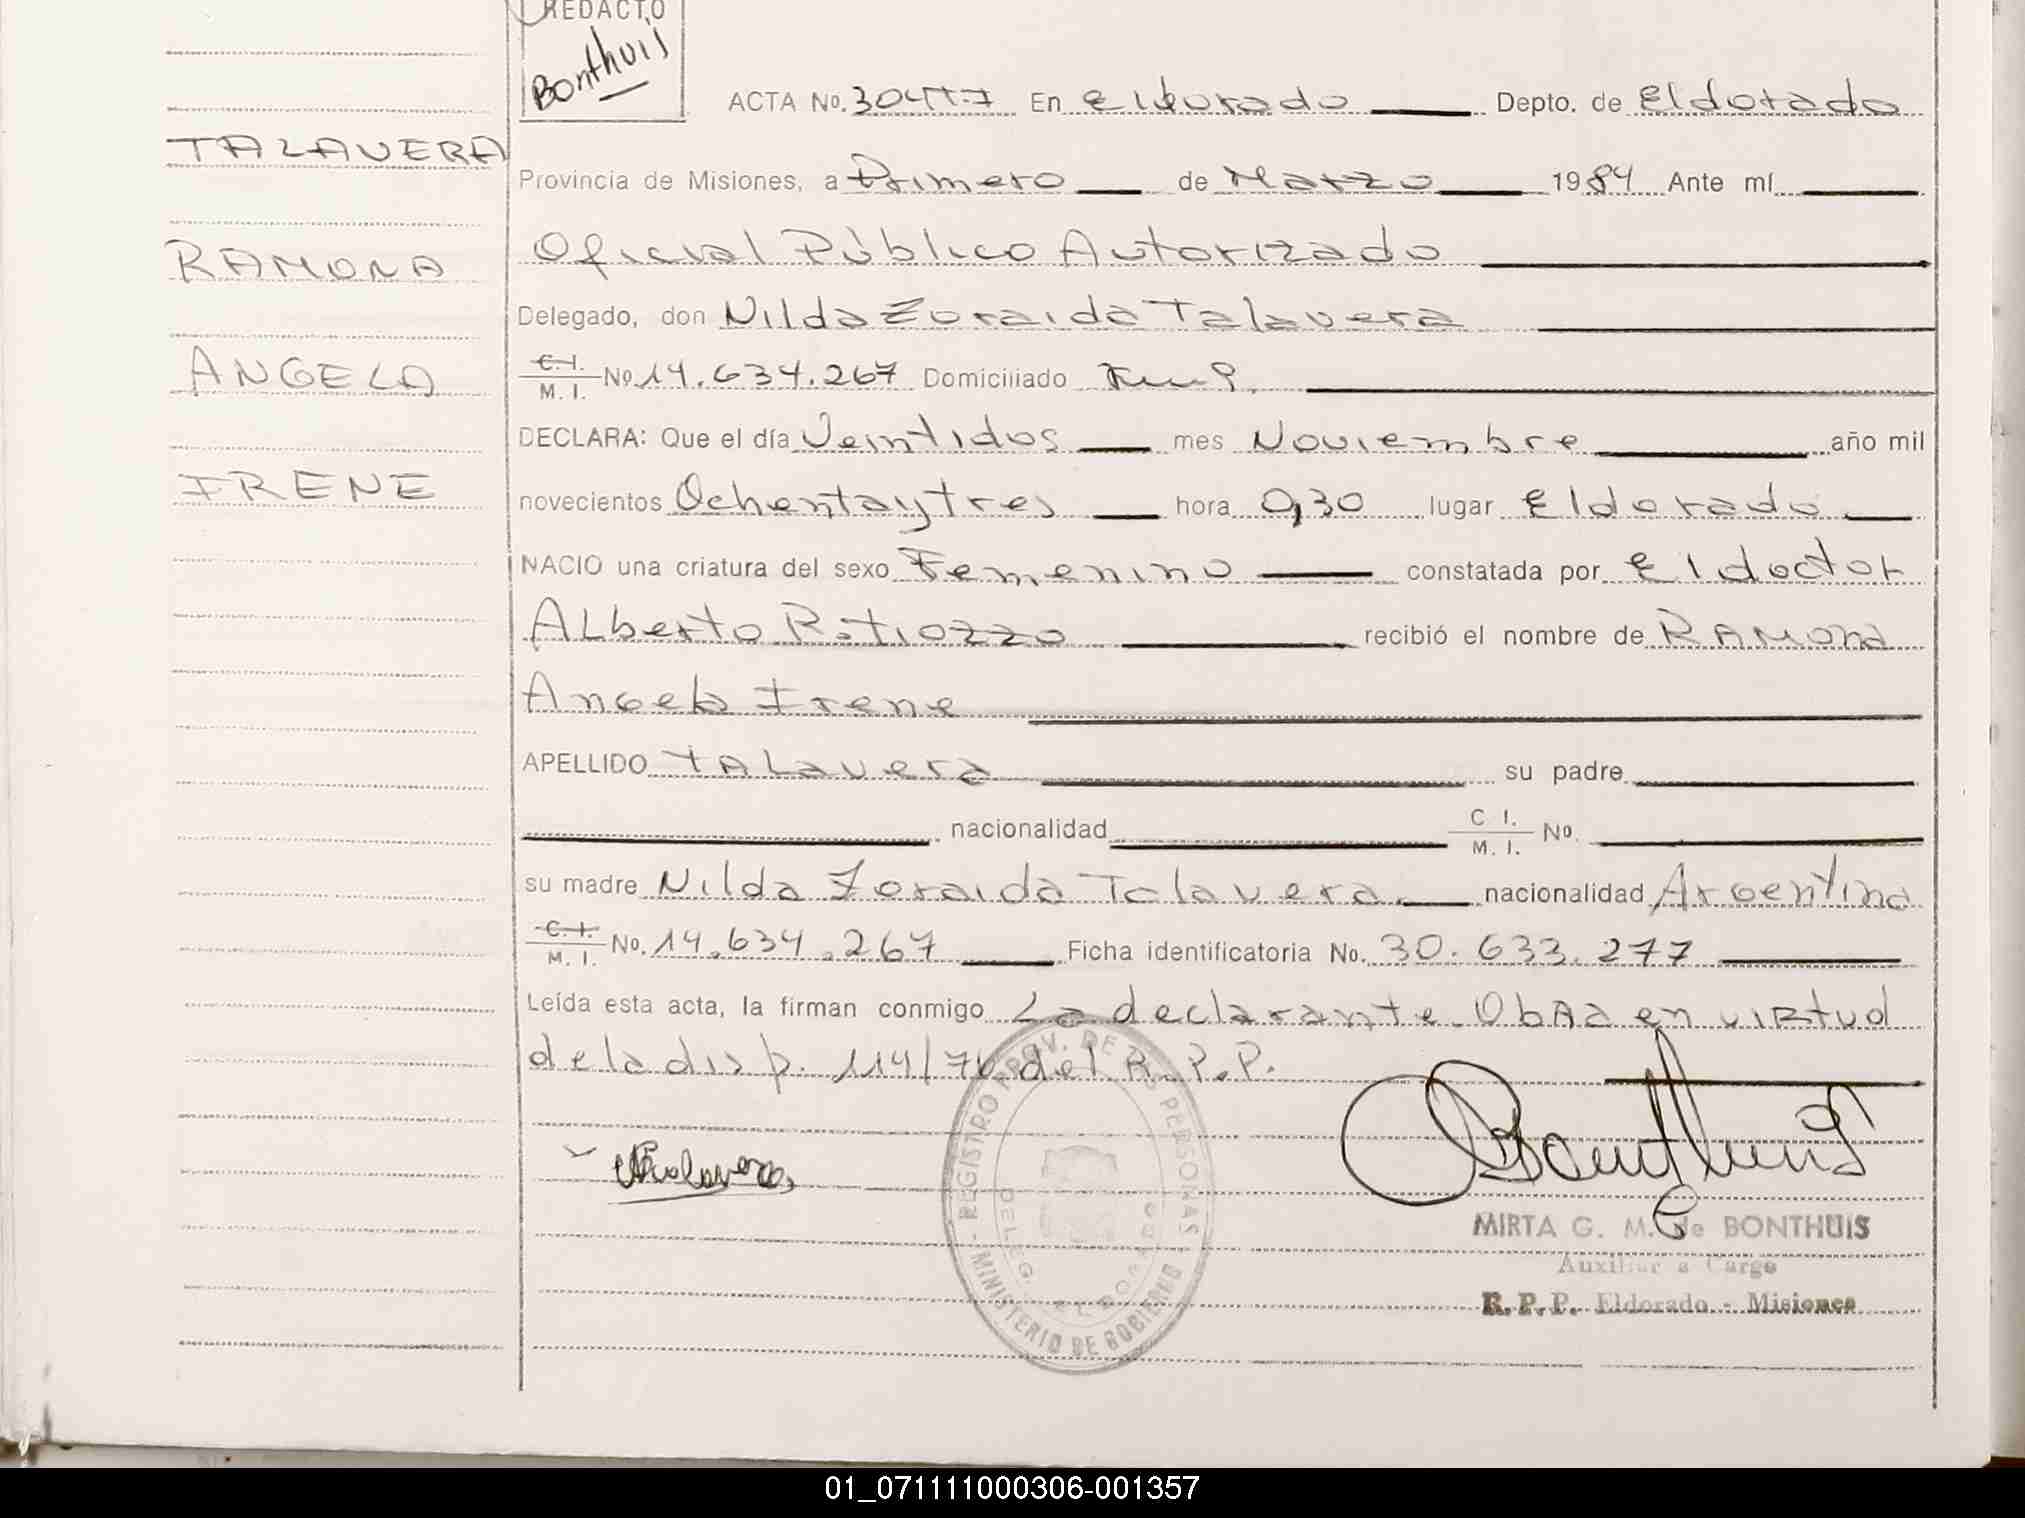 REDACTO
Bonthuis
ACTA No. En Eldorado Depto. de Eldorado
TALAVERA
Provincia de Misiones, a Primero de Marzo 1984 Ante mí
RAMONA
Oficial Público Autorizado
Delegado, don Nilda Zoraida Talavera
ANGELA
C. I. M. I. No. 14.634.267 Domiciliado
DECLARA: Que el día Veintidos mes Noviembre año mil
IRENE
novecientos Ochentaytres hora 0,30 lugar Eldorado
NACIO una criatura del sexo Femenino constatada por El doctor
Alberto R. recibió el nombre de RAMONA
Angela Irene
APELLIDO TALavera su padre
nacionalidad C I. M. I. No.
su madre Nilda Zoraida Talavera nacionalidad Argentina
C. I. M. I. No. 14.634.267 Ficha identificatoria No. 30.633.277
Leída esta acta, la firman conmigo La declarante. Obra en virtud
de la disp. 114/76 del R.P.P.
REGISTRO PROV. DE LAS PERSONAS - MINISTERIO DE GOBIERNO
DELEG. ELDORADO
Talavera
Bonthuis
MIRTA G. M. de BONTHUIS
Auxiliar a Cargo
R.P.P. Eldorado - Misiones
01_071111000306-001357